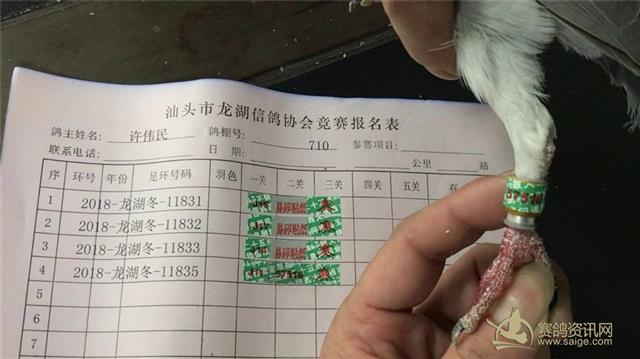 汕头市龙湖信鸽协会竞赛报名表
鸽主姓名: 许伟民 鸽棚号: 710 参赛项目:
联系电话: 日期: 公里 站
序 环号 年份 足环号码 羽色 一关 二关 三关 四关 五关
1 2018-龙湖冬-11831 易碎贴纸
2 2018-龙湖冬-11832 易碎贴纸
3 2018-龙湖冬-11833 易碎贴纸
4 2018-龙湖冬-11835
5
6
7
8
赛鸽资讯网
www.saige.com